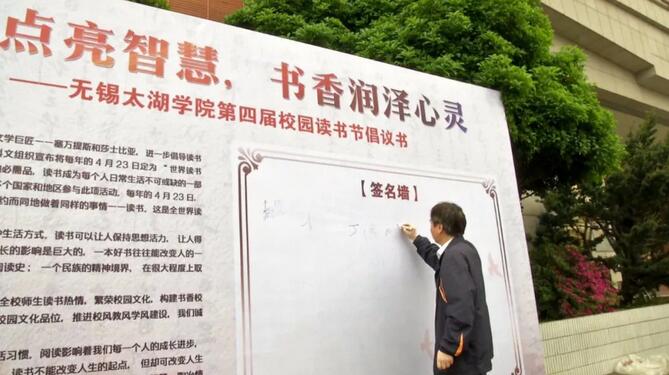 点亮智慧，书香润泽心灵
——无锡太湖学院第四届校园读书节倡议书
文学巨匠——塞万提斯和莎士比亚，进一步倡导读书
科文组织宣布将每年的4月23日定为“世界读书
必需品，读书成为每个人日常生活不可或缺的一部
个国家和地区参与此项活动，每年的4月23日，
约而同地做着同样的事情——读书，这是全世界读
生活方式，读书可以让人保持思想活力，让人得
长的影响是巨大的，一本好书往往能改变人的一
阅读史；一个民族的精神境界，在很大程度上取
全校师生读书热情，繁荣校园文化，构建书香校
校园文化品位，推进校风教风学风建设，我们诚
活习惯，阅读影响着我们每一个人的成长进步，
读书不能改变人生的起点，但却可改变人生
【签名墙】